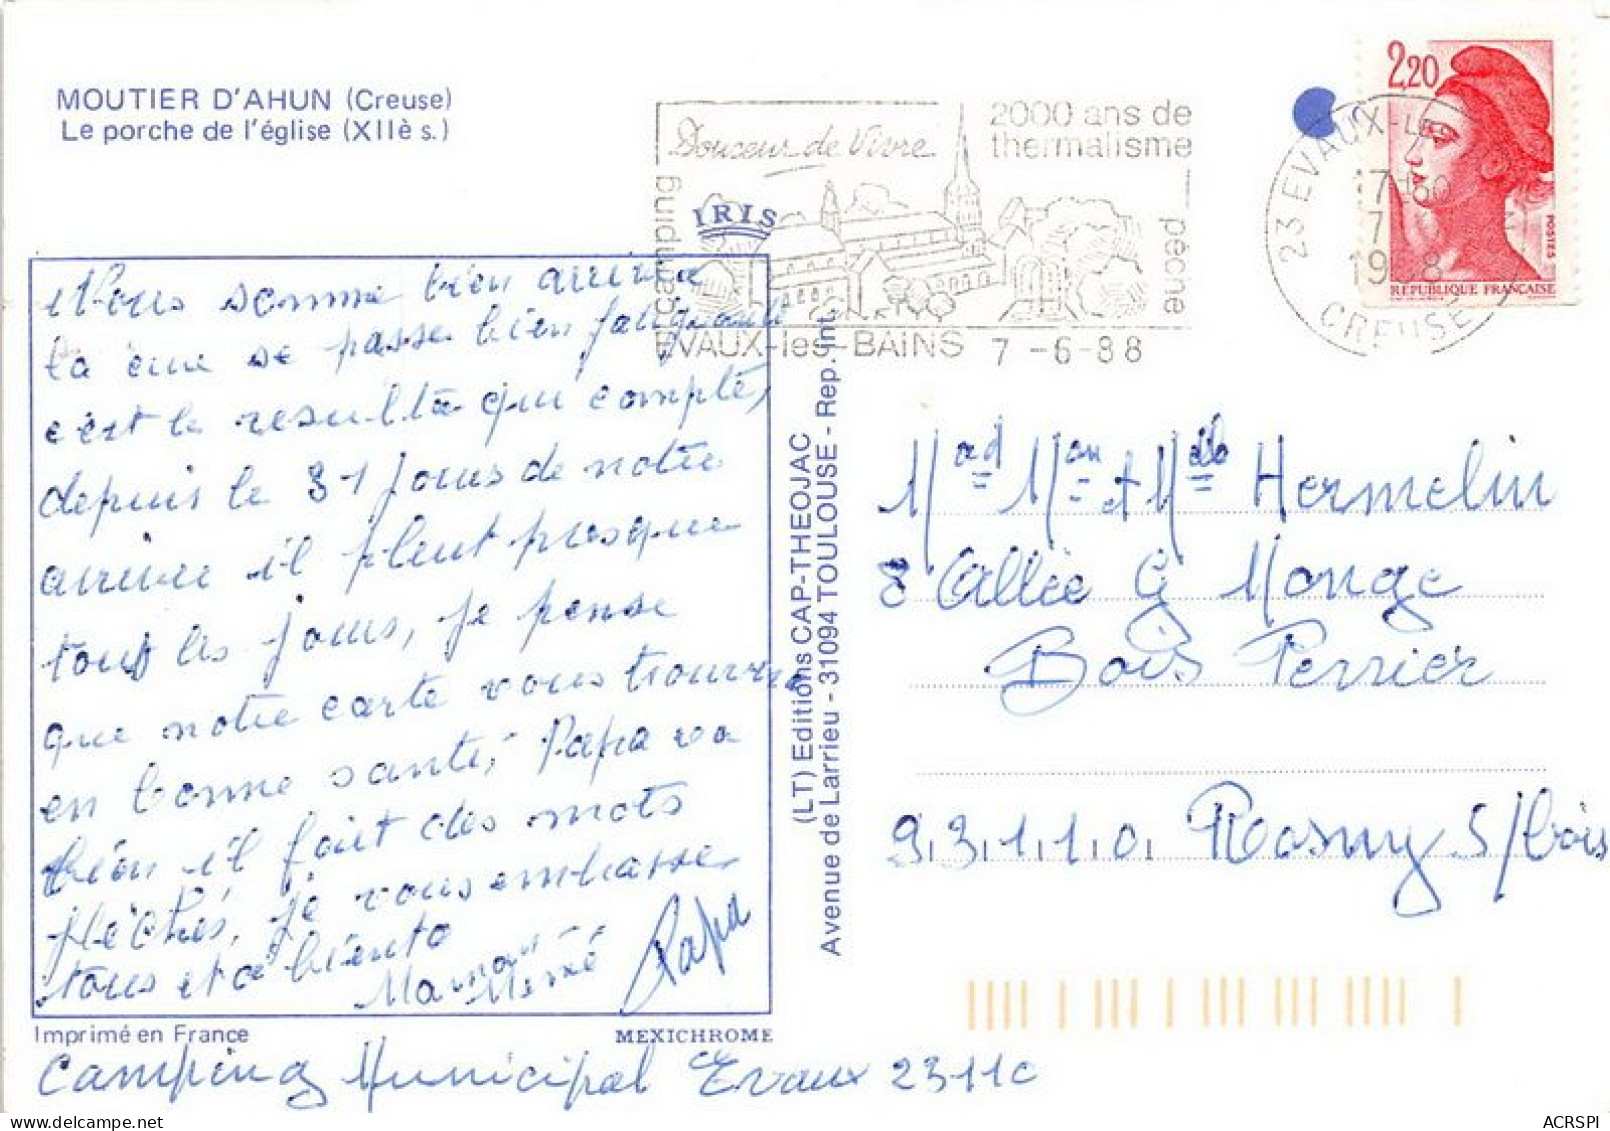 MOUTIER D'AHUN (Creuse)
Le porche de l'église (XIIè s.)
Douceur de Vivre
2000 ans de
thermalisme
camping
pêche
EVAUX-les-BAINS 7-6-88
IRIS
23 EVAUX-LES
17H
7
1988
CREUSE
2,20
POSTES
REPUBLIQUE FRANÇAISE
Nous somme bien arrivée
la cure se passe bien fatiguant
c'est le resulta qui compte,
depuis le 31 jours de notre
arrivée il pleut presque
tous les jours, je pense
que notre carte vous trouvera
en bonne santé, Papa va
bien il fait des mots
fléchés, je vous embrasse
tous et a biento
Maman Mémé Papa
Imprimé en France
MEXICHROME
(LT) Editions CAP-THEOJAC
Avenue de Larrieu - 31094 TOULOUSE - Rep. Int.
Mad Mon et Mlle Hermelin
8 Allée G Monge
Bois Perrier
93110 Rosny s/bois
Camping Municipal Evaux 23110
ACRSPI